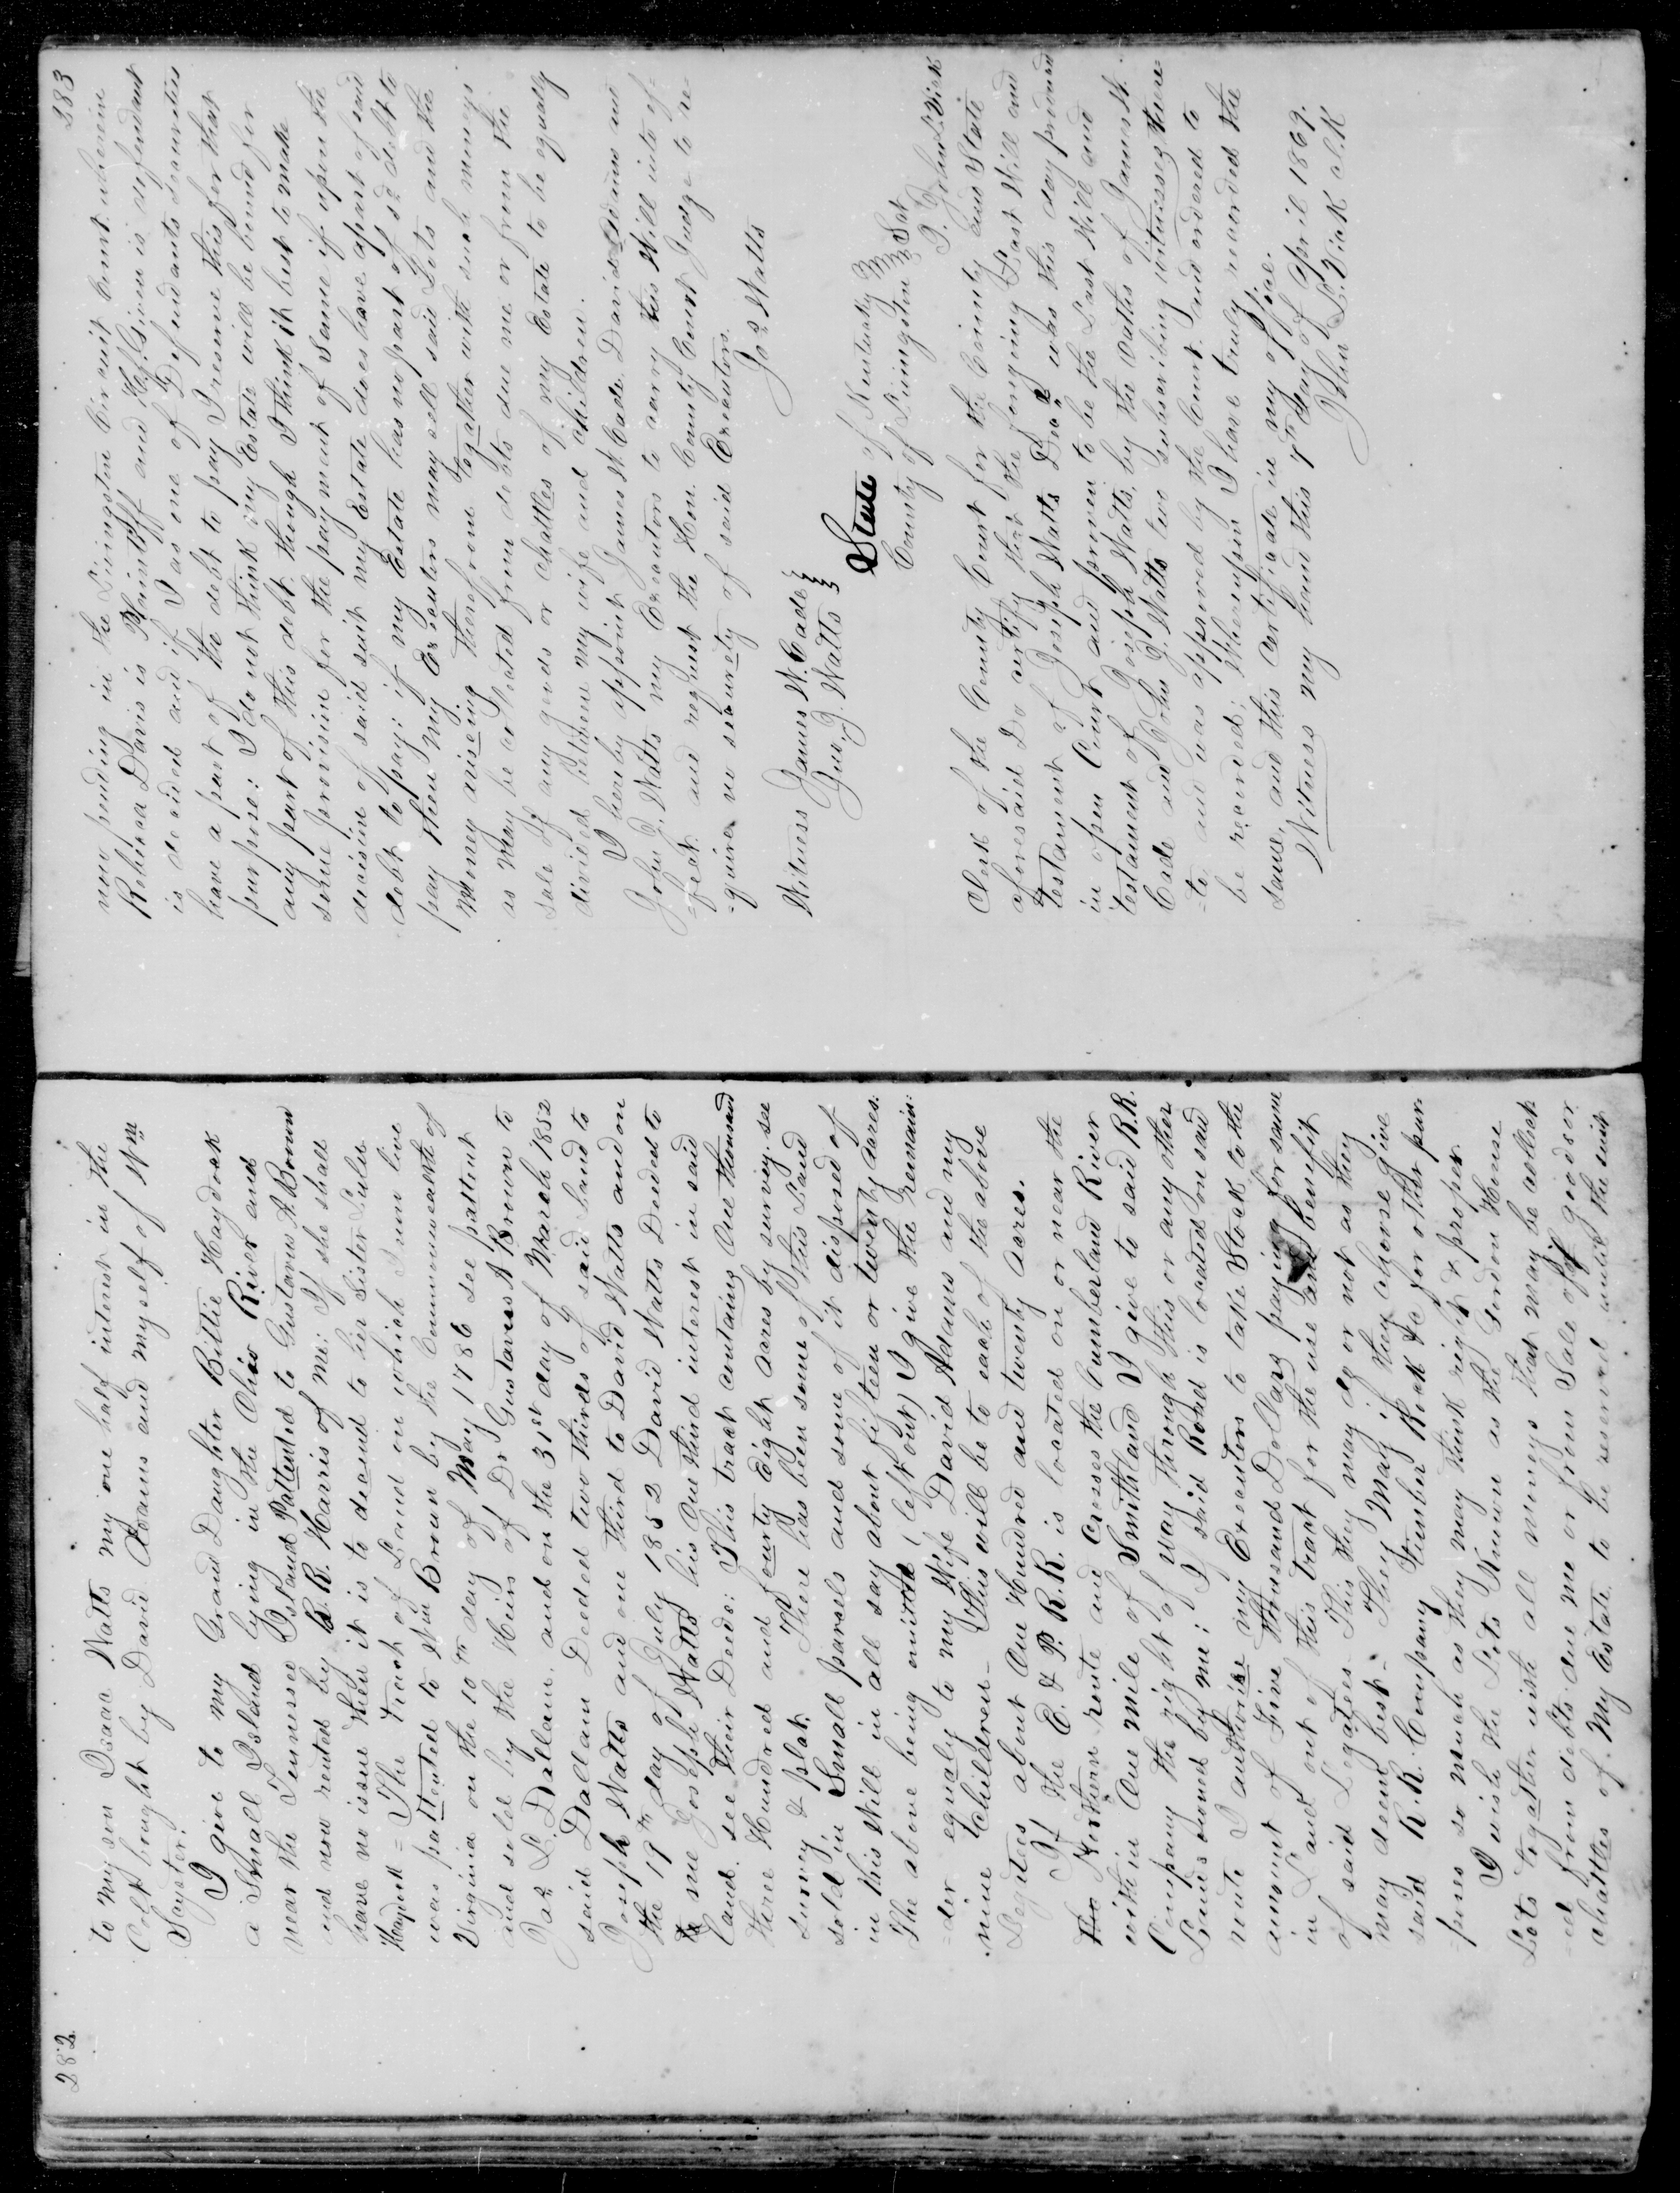 282
to my son Isaac Watts my one half interest in the
Colt bought by David Adams and myself of Wm
Sayster.
I give to my Grand Daughter Bittie Haydock
a Small Island lying in the Ohio River and
near the Tennessee Island Pattented to Gustavus A Brown
and now rented by B. R. Harris of me: If she shall
have no issue then it is to decend to her Sister Lulu
Haydock = The track of Land on which I now live
was pattented to Wm Brown by the Commonwealth of
Virginia on the 10th day of May 1786 see pattent
and sold by the Heirs of Dr Gustaves A Brown to
Jas L. Dallam, and on the 31st day of March 1852
said Dallam Deeded two thirds of said Land to
Joseph Watts and one third to David Watts and on
the 19th day of July 1852 David Watts Deeded to
to me Joseph Watts his One third interest in said
Land, see their Deeds: This tract contains One thousand
three Hundred and fourty Eight acres by survey. see
survey & plat. There has been some of this Land
sold in Small parcels and some of it disposed of
in this Will in all say about fifteen or twenty acres.
The above being omitted (left out) I give the remain:
=der equaly to my Wife David Adams and my
nine Children - This will be to each of the above
Legatees about One Hundred and twenty acres.
If the E. & P. R.R. is located on or near the
the Northern route and Crosses the Cumberland River
with in One mile of Smithland I give to said R.R.
Company the right of way through this or any other
Land owned by me; If said Road is located on said
route I authorise my Executors to take Stock to the
amount of Five thousand Dollars paying for same
in Land out of this tract for the use and benefit
of said Legatees. This they may do or not as they
may deem best. They May if they choose give
said R.R. Company Timber Rock &c for other pur
=poses so much as they may think right & proper.
I wish the Lots Known as the Gordon House
Lots togather with all moneys that may be collect
=ed from debts due me or from Sale off goods or
chattles of My Estate to be reserved until the suit
283
now pending in the Livingston Circuit Court wherein
Rebecca Davis is Plaintiff and H. Given is defendant
is decided and if I as one of Defendants securities
have a part of the debt to pay I resirve this for that
purpose: I do not think my Estate will be bound for
any part of this debt though I think it best to make
some provision for the payment of Same if upon the
decision of said suit my Estate does have apart of said
debt to pay: if my Estate has no part of sd debt to
pay then my Executors may sell said Lots and the
Money ariseing therefrom togather with such moneys
as may be collected from debts due me or from the
sale of any goods or chattles of my Estate to be equally
divided between my wife and children.
I hereby appoint James W. Cade David Adams and
John J. Watts my Executors to carry this Will into ef-
=fect and request the Hon. County Court Judge to re
-quire no security of said Executors.
Jos Watts
Witness James W. Cade
Jno. J. Watts
State of Kentucky
County of Livingston Sct
I John L. Vick
Clerk of the County Court for the County and State
aforesaid Do certify that the forgoing Last Will and
testament of Joseph Watts Decd was this day produced
in open Court and proven to be the Last Will and
testament of Joseph Watts, by the oaths of James W.
Cade and John J. Watts two subscribing witnesses there
=to and was approved by the Court and ordered to
be recorded; Whereupon I have truly recorded the
same, and this certificate in my office.
Witness my hand this 7th day of April 1869.
John L. Vick clk